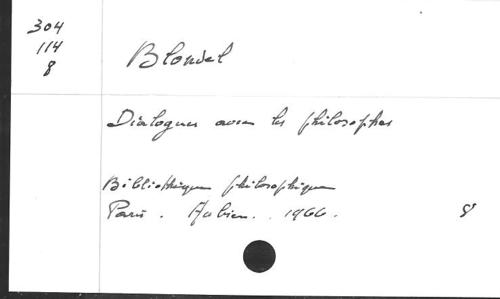 304
114
8
Blondel
Dialogues avec les philosophes
Bibliothèque philosophique
Paris. Aubier. 1966. 8°